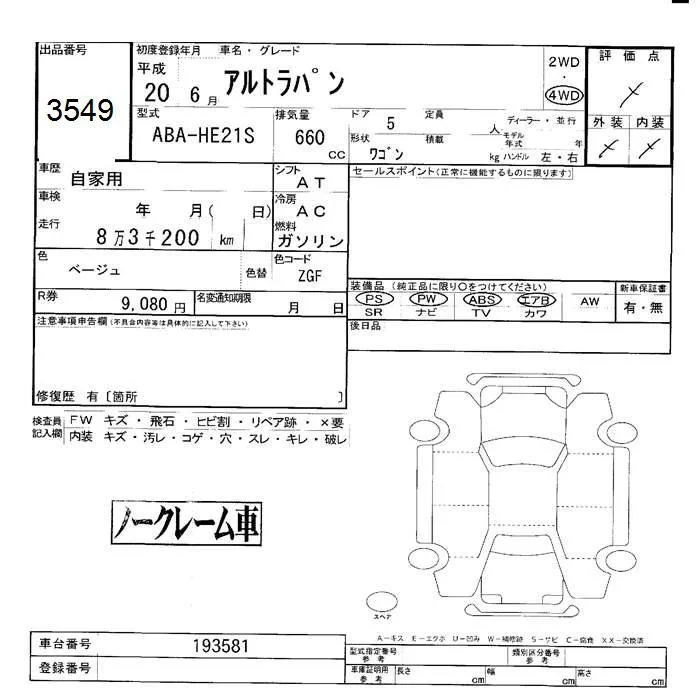 出品番号
3549
初度登録年月 車名・グレード
平成
20 6月 アルトラパン
2WD
・
4WD
評価点
型式
ABA-HE21S
排気量
660
CC
ドア 5 定員 人
形状 ワゴン 積載 kg
ディーラー・並行
モデル年式 年
ハンドル 左・右
外装 内装
車歴
自家用
シフト
AT
車検
年 月( 日)
冷房
AC
走行
8万3千200 km
燃料
ガソリン
セールスポイント(正常に機能するものに限ります)
色
ベージュ
色替
色コード
ZGF
R券
9,080円
名変通知期限
月 日
装備品 (純正品に限り○をつけてください)
PS PW ABS エアB AW
SR ナビ TV カワ
新車保証書
有・無
後日品
注意事項申告欄(不具合内容等は具体的に記入して下さい)
修復歴 有〔箇所 〕
検査員記入欄
FW キズ・飛石・ヒビ割・リペア跡・×要
内装 キズ・汚レ・コゲ・穴・スレ・キレ・破レ
ノークレーム車
スペア
A−キス E−エクホ U−凹み W−補修跡 S−サビ C−腐食 XX−交換済
車台番号 193581
登録番号
型式指定番号
参考
類別区分番号
参考
車庫証明用
参考
長さ cm 幅 cm 高さ cm